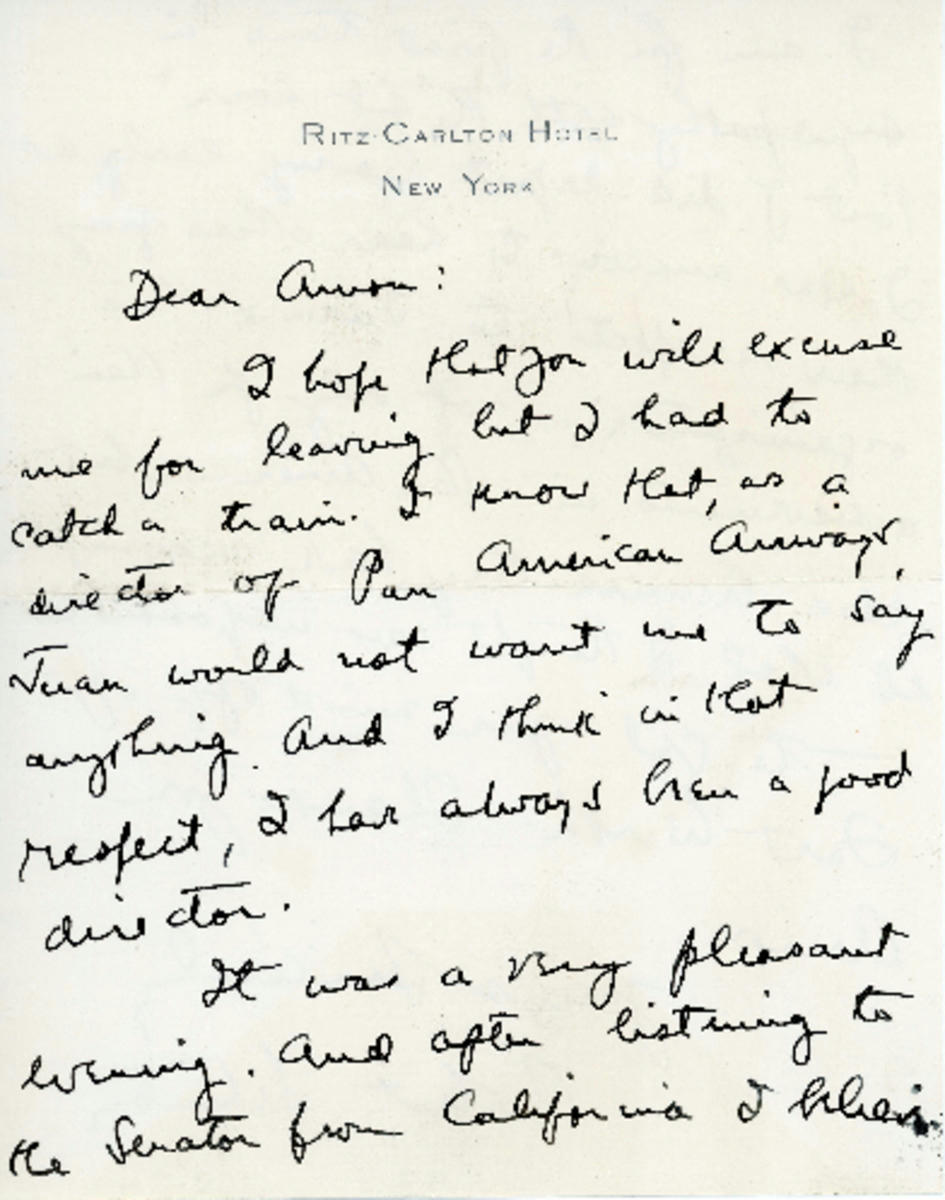 RITZ-CARLTON HOTEL
NEW YORK
Dear Amon:
I hope that you will excuse
me for leaving but I had to
catch a train. I know that, as a
director of Pan American Airways,
Juan would not want me to say
anything. And I think in that
respect, I have always been a good
director.
It was a very pleasant
evening. And after listening to
the Senator from California I believe